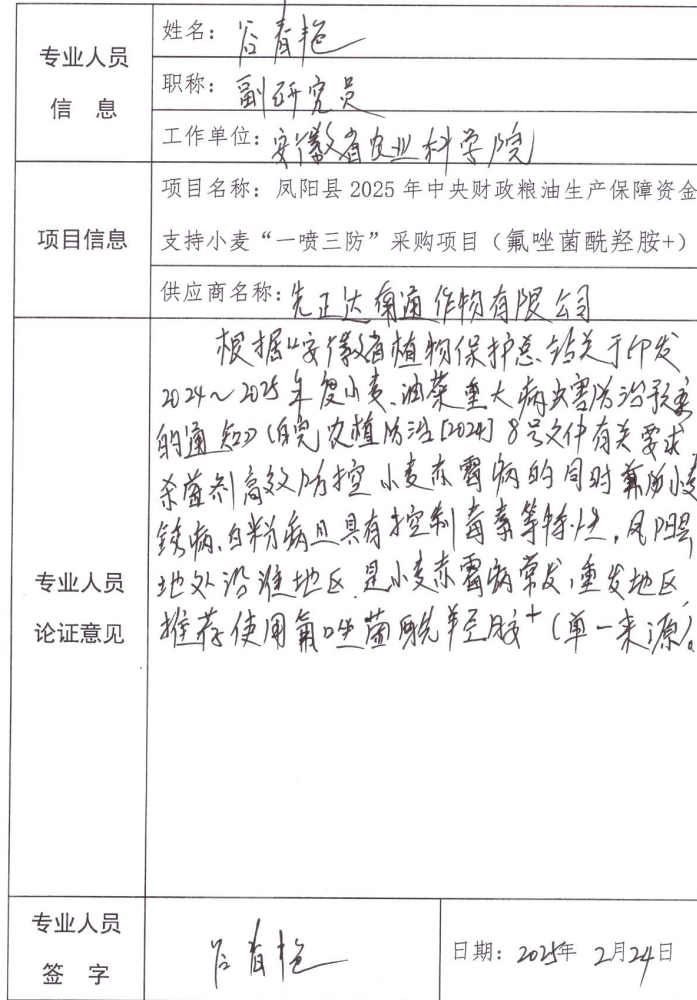 专业人员
信 息
姓名：谷春艳
职称：副研究员
工作单位：安徽省农业科学院
项目信息
项目名称：凤阳县 2025 年中央财政粮油生产保障资金
支持小麦“一喷三防”采购项目（氟唑菌酰羟胺+）
供应商名称：先正达南通作物有限公司
专业人员
论证意见
根据《安徽省植物保护总站关于印发
2024～2025年度小麦、油菜重大病虫害防治预案
的通知》（皖农植防治[2024]8号文件有关要求
杀菌剂高效防控小麦赤霉病的同时兼防小麦
锈病、白粉病且具有控制毒素等特性，凤阳县
地处沿淮地区，是小麦赤霉病常发，重发地区
推荐使用氟唑菌酰羟胺+（单一来源）。
专业人员
签 字
谷春艳
日期：2025年 2月24日